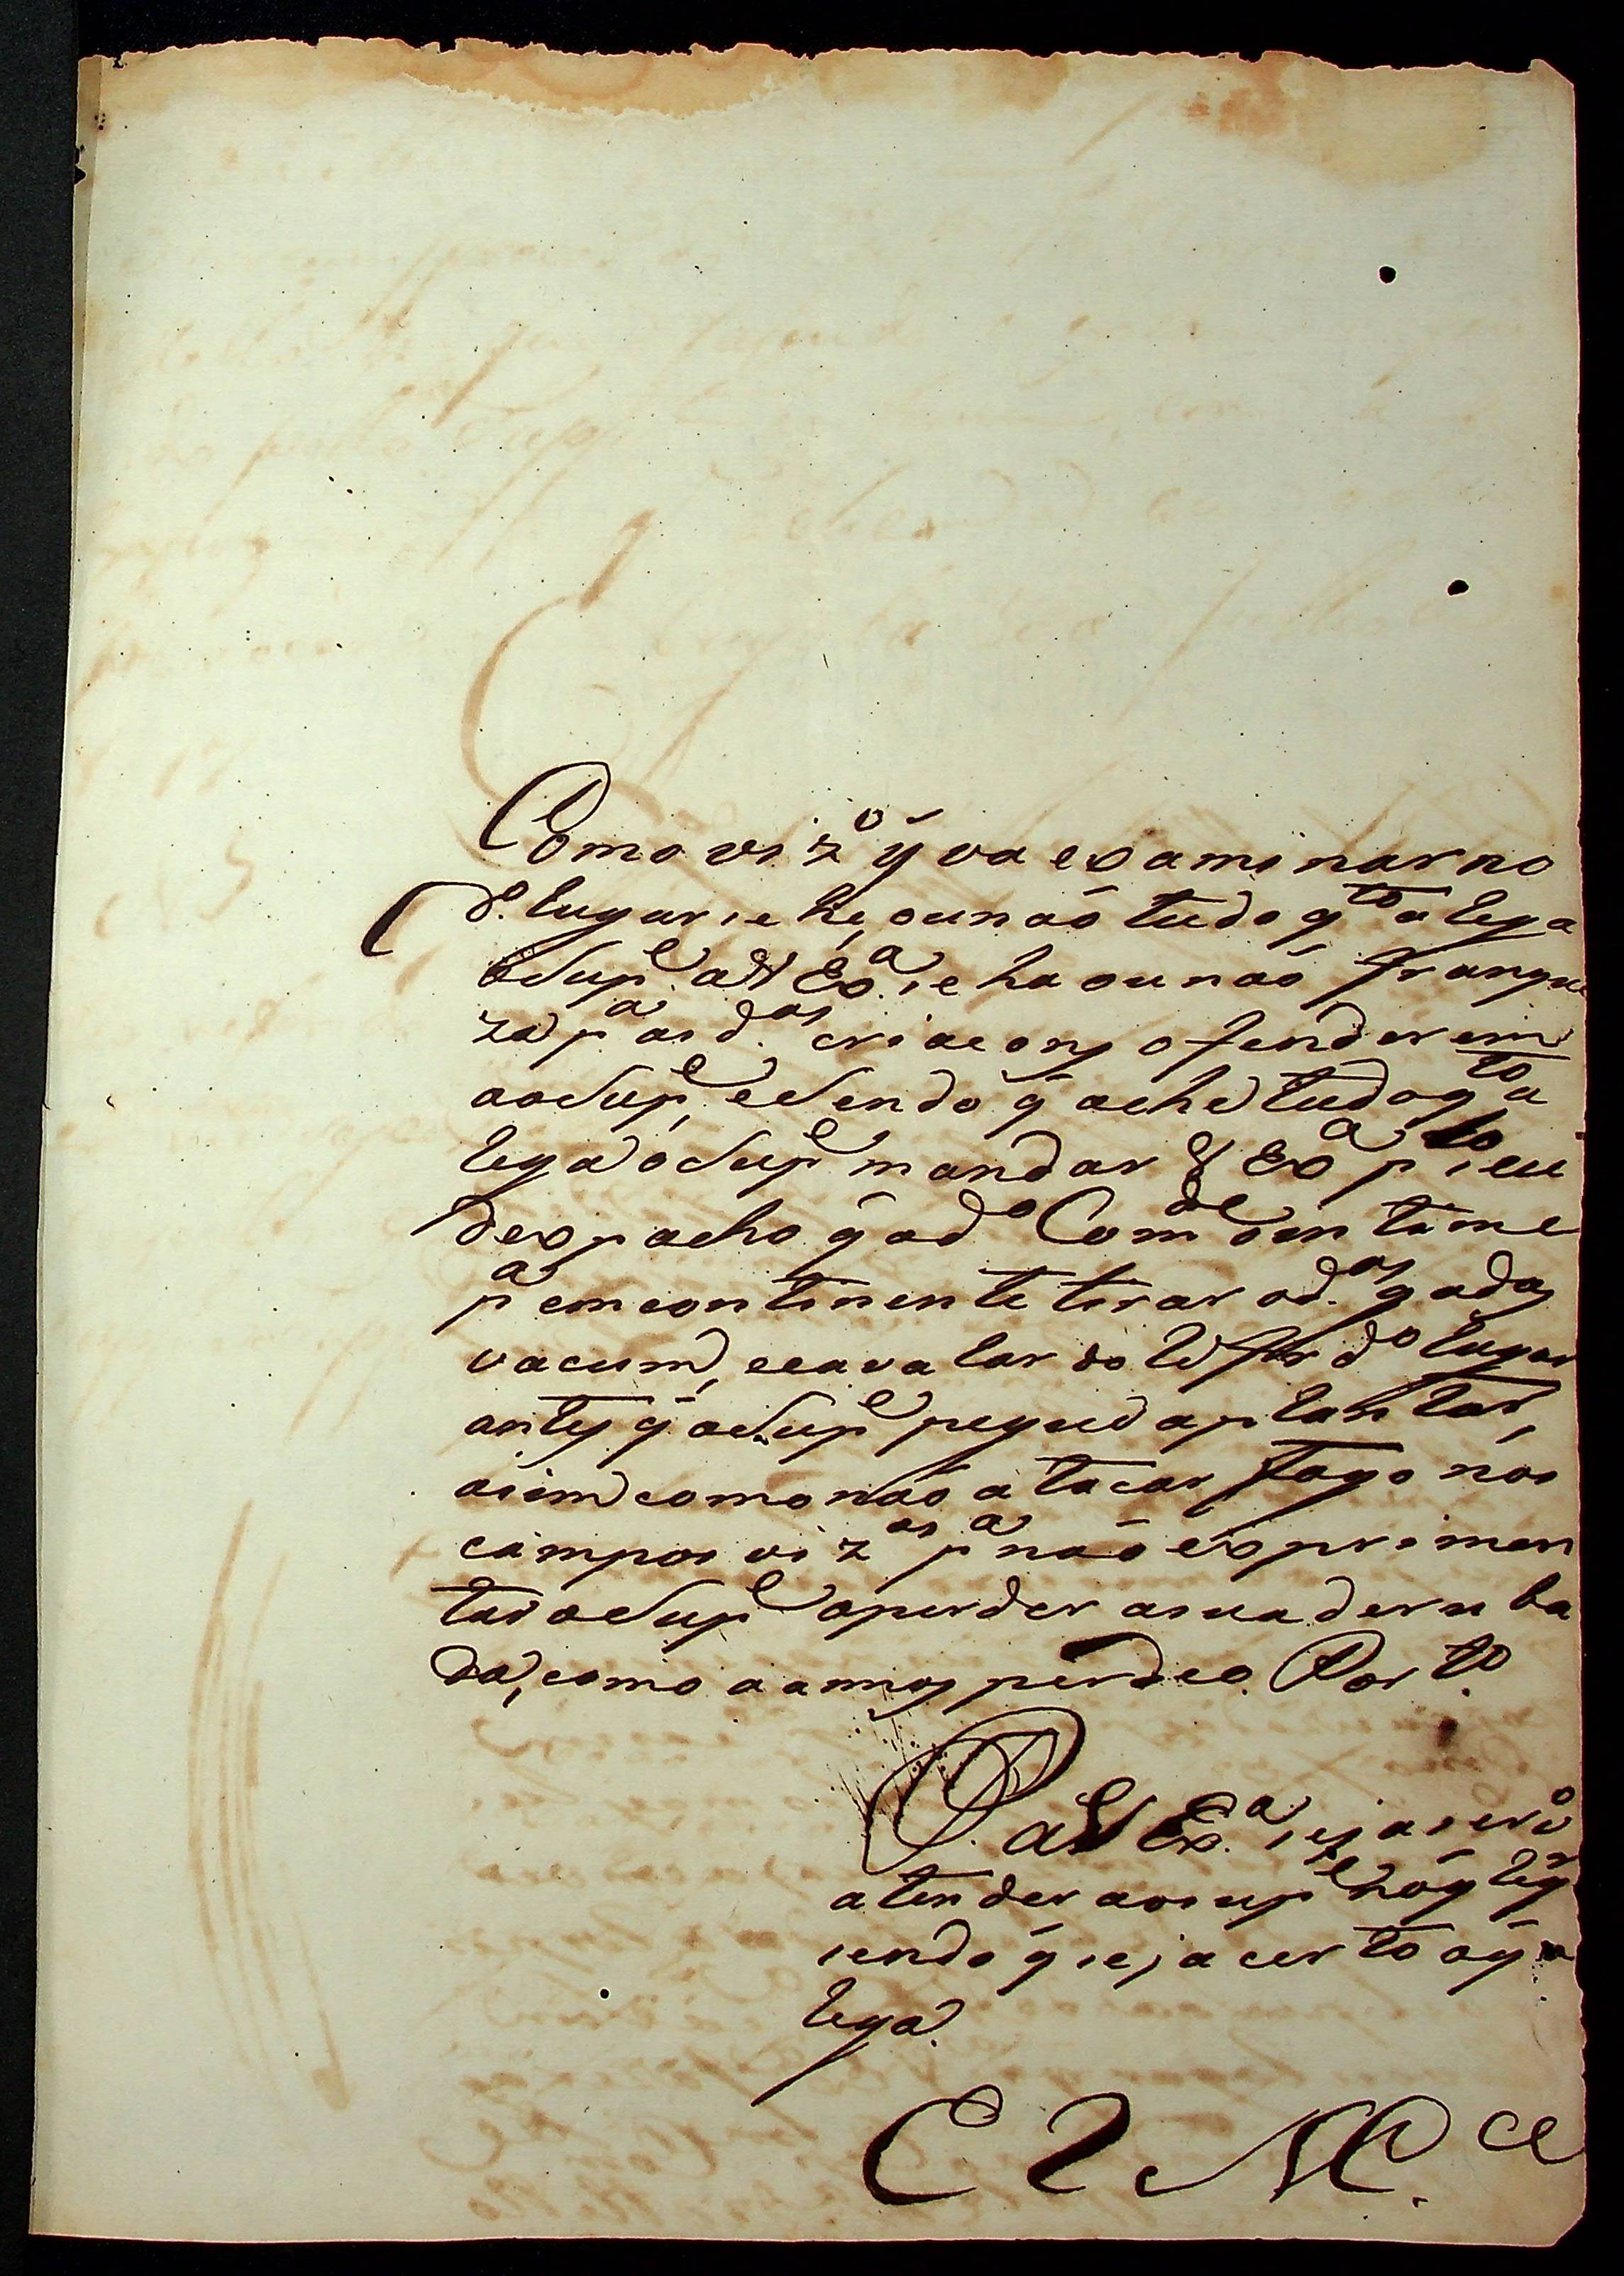 Como viz.º q̃ va examinar no
d.º lugar se he, ou naõ tudo q.to alega
o Sup.e a V Ex.a se ha ou naõ franque
za p.a as d.as criaçoẽs ofenderem
ao Sup.e, e Sendo q̃ ache tudo q.to a
lega o Sup.e mandar V Ex.a p.lo seu
despacho q̃ o d.o Com.de entime
p.a emcontinente tirar os d.os gados
vacum, e cavalar do d.o lugar
antes q̃ o Sup.e pegue a plantar,
asim como naõ atacar fogo nos
campos viz.os p.a naõ expriman
tar o Sup.e a perder a sua deruba
da, como a annos perdeo. Por t.o
P. a V Ex.a seja servi
atender ao sup.e no q̃
sendo q̃ seja certo o q̃ a
lega.
E R M.ce